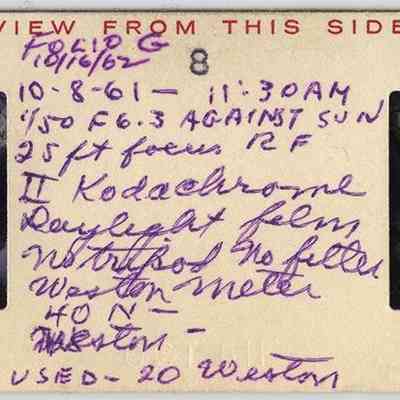 VIEW FROM THIS SIDE
FOLIO G
10/16/62
8
10-8-61- 11:30AM
1/50 F6.3 AGAINST SUN
25ft focus RF
II Kodachrome
Daylight film
No tripod No filter
Weston meter
40 N-
Weston-
USED- 20 Weston